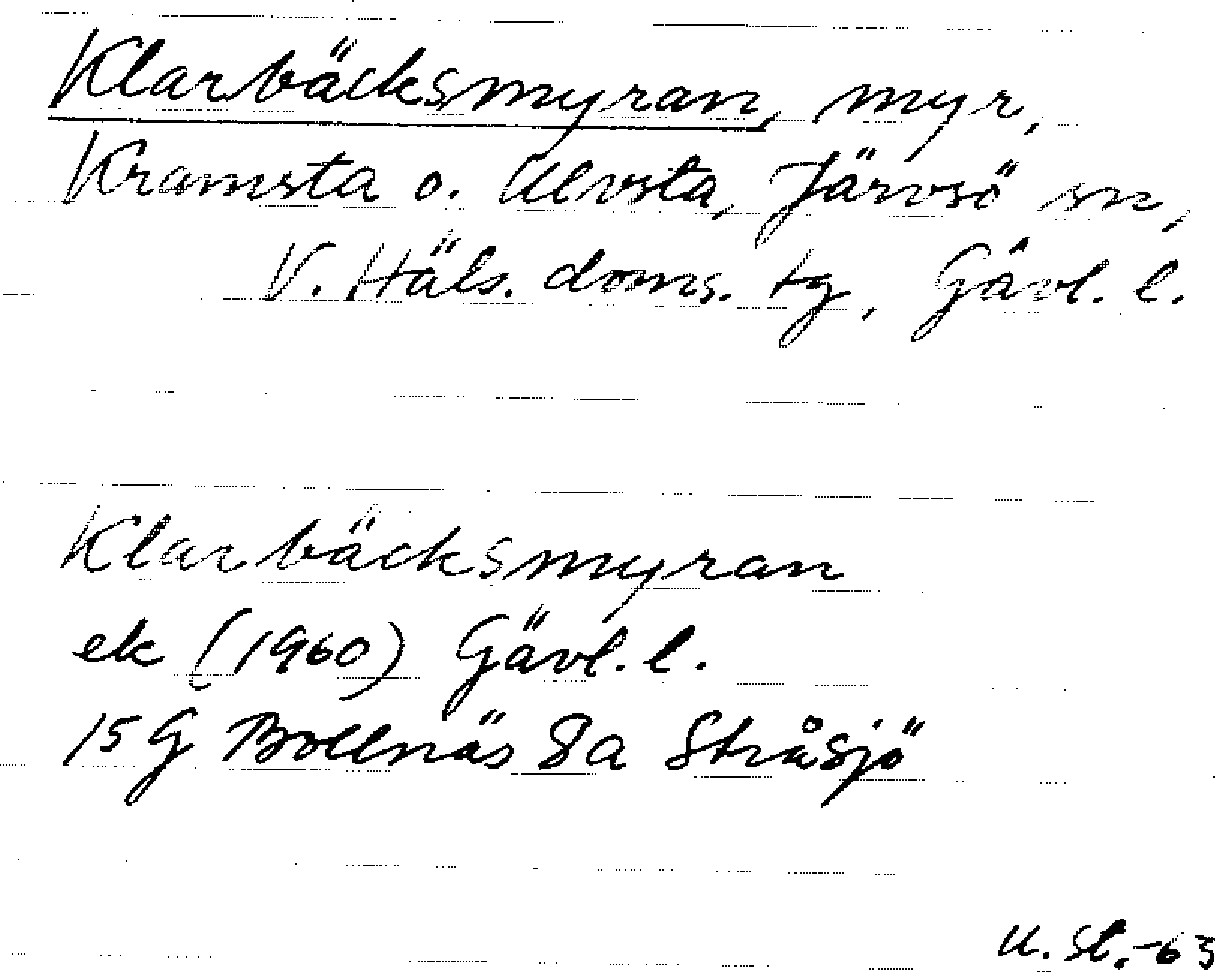 Klarbäcksmyran, myr,
Kramsta o. Ulvsta, Järvsö sn,
V. Häls. doms. tg, Gävl. l.
Klarbäcksmyran
ek (1960) Gävl. l.
15 G Bollnäs 8a Stråsjö
U. St. -63